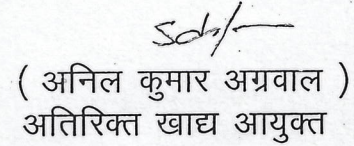 Sd/-
( अनिल कुमार अग्रवाल )
अतिरिक्त खाद्य आयुक्त